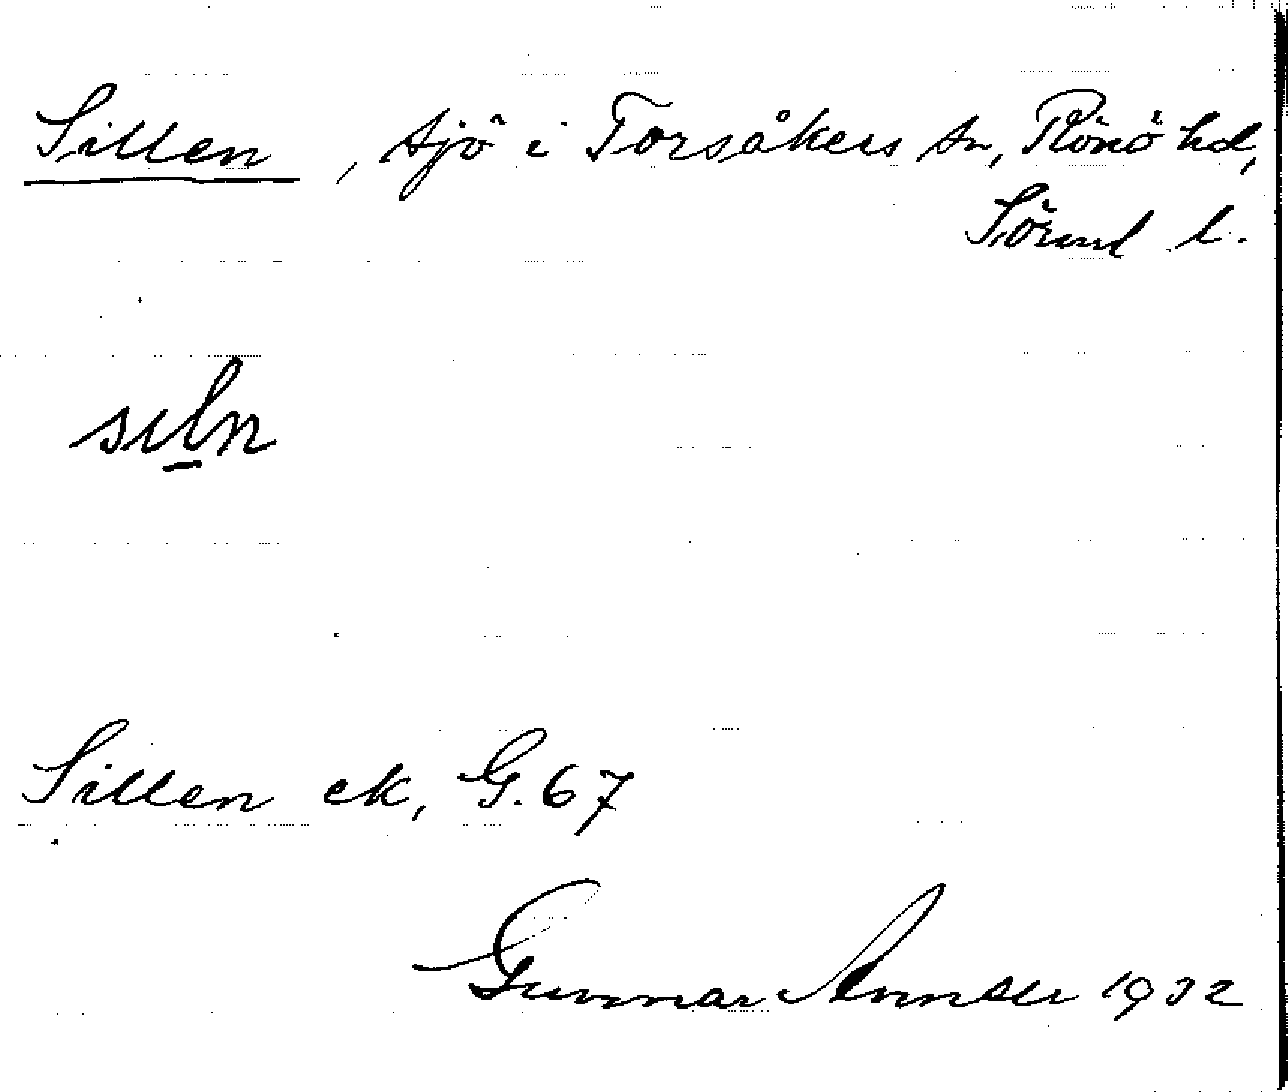 Sillen, sjö i Torsåkers sn, Rönö hd,
Sörml l.
siln
Sillen ek, G. 67
Gunnar 1932